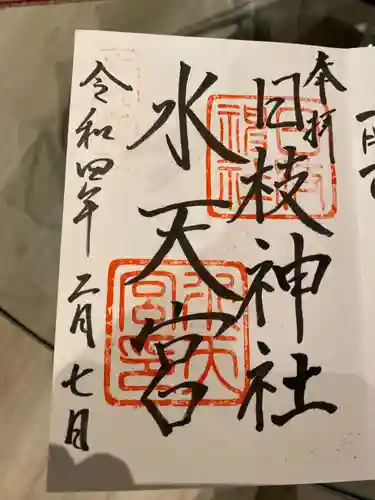 奉拝
旧枝神社
水天宮
令和四年 二月七日